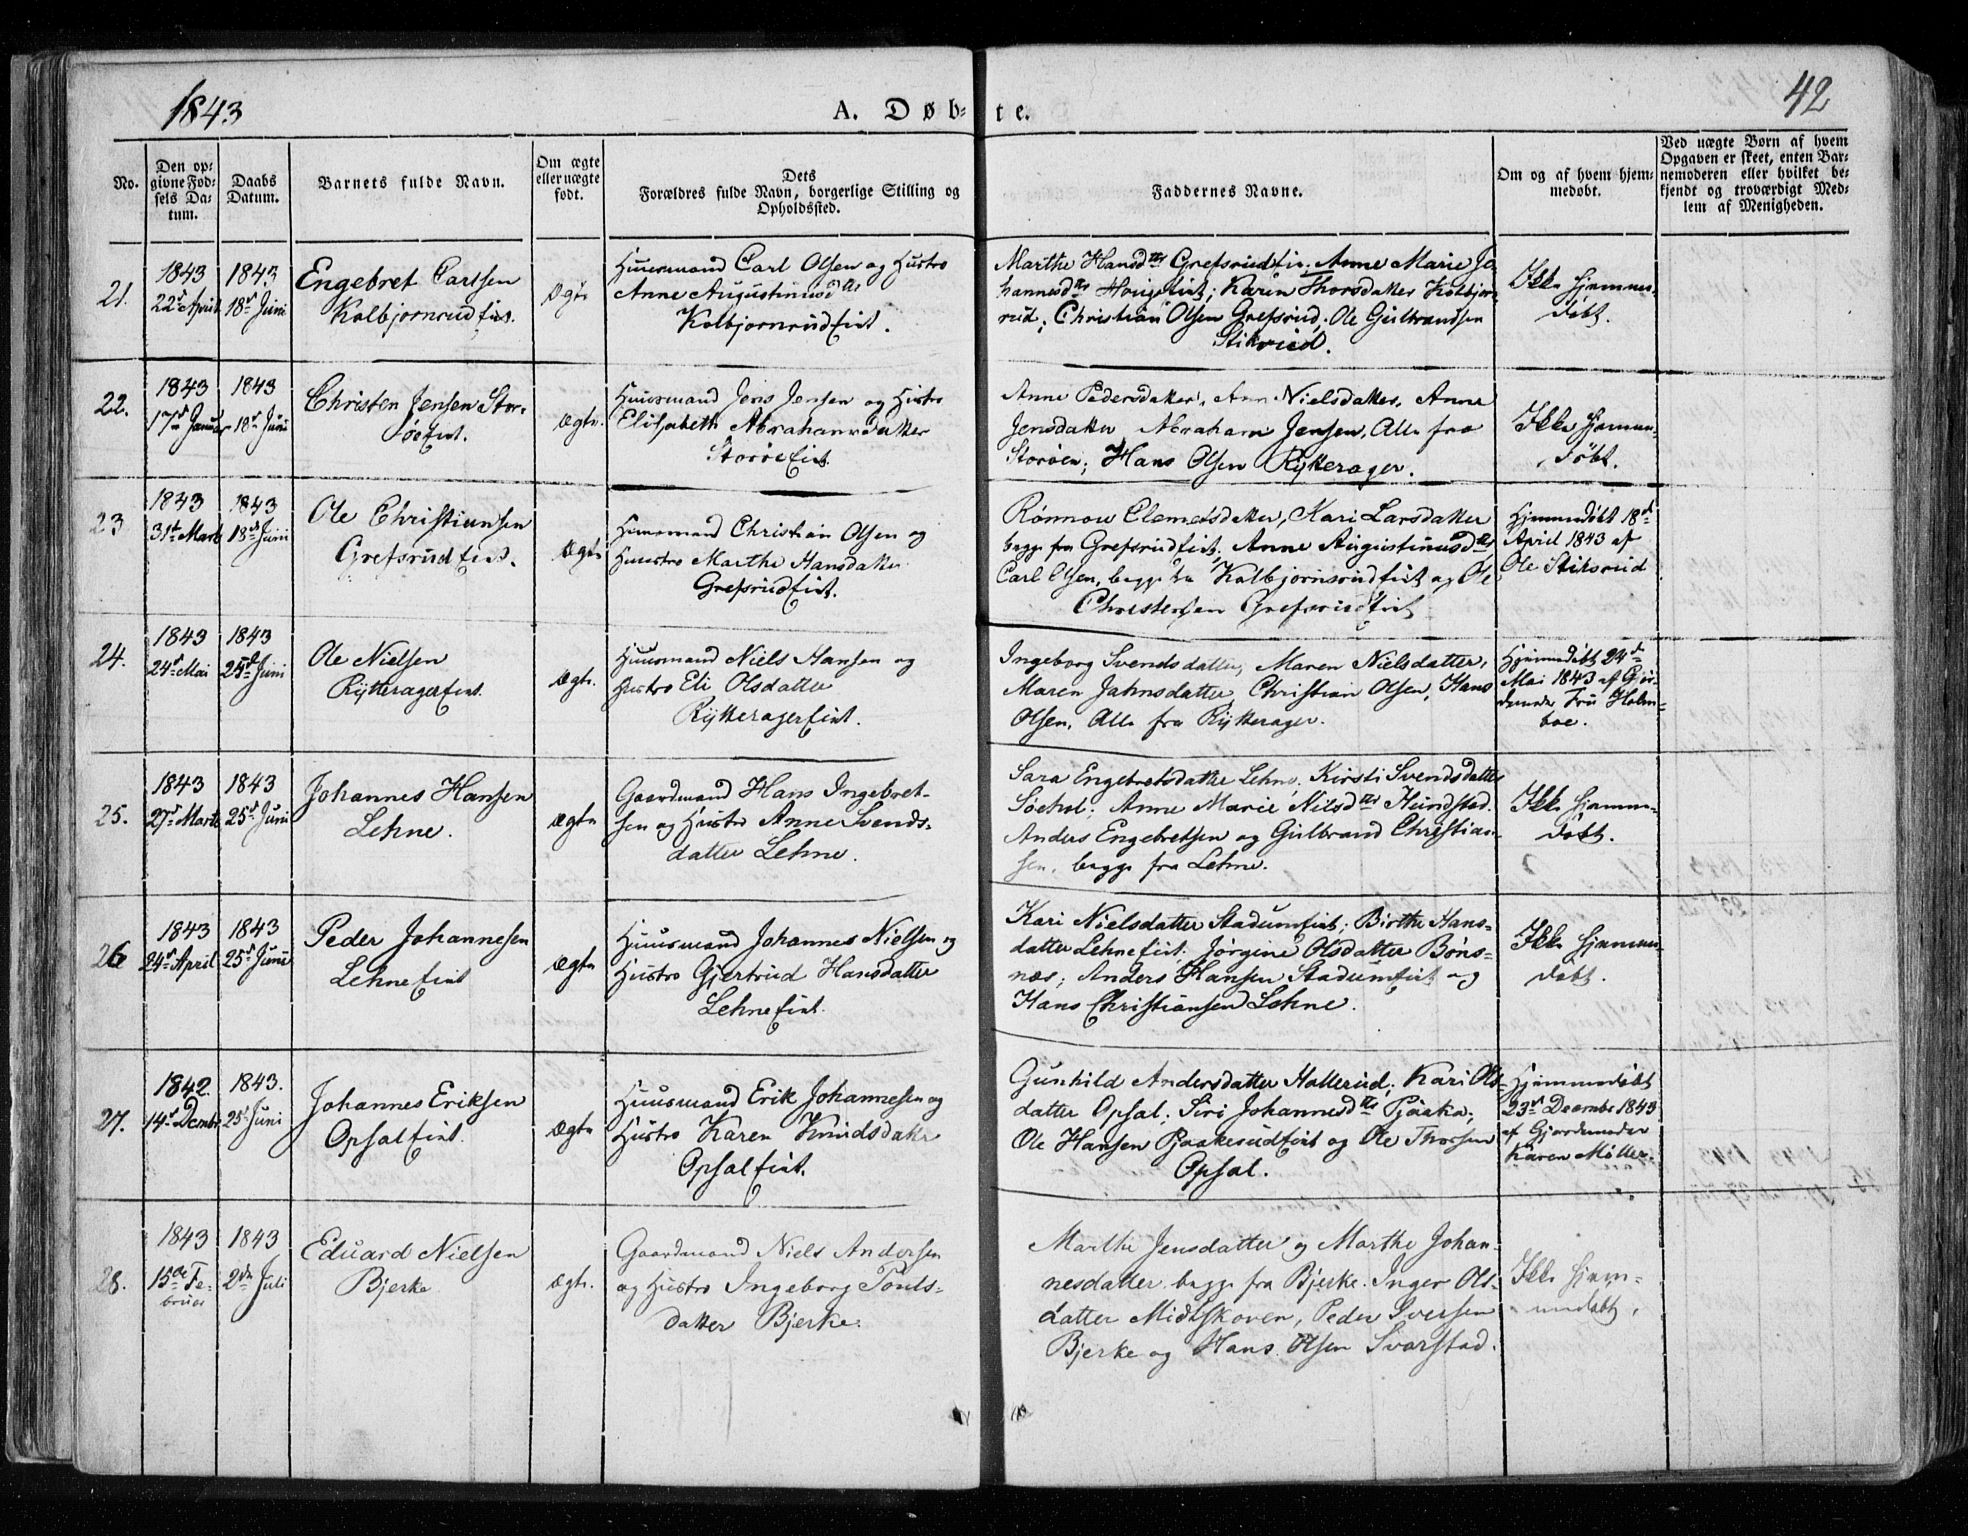 1843
A. Døb-te.
42
No.
Den op-
givne Fød-
sels Da-
tum.
Daabs
Datum.
Barnets fulde Navn.
Om ægte
eller uægte
født.
Dets
Forældres fulde Navn, borgerlige Stilling og
Opholdssted.
Faddernes Navne.
Om og af hvem hjem-
medøbt.
Ved uægte Børn af hvem
Opgaven er skeet, enten Bar-
nemoderen eller hvilket be-
kjendt og troværdigt Med-
lem af Menigheden.
21.
1843
22de April
1843
18de Juni
Engebret Carlsen
Kolbjornrud
Ægte
Huusmand Carl Olsen og Hustro
Anne Augustinusdtr
Kolbjornrud
Marthe Hansdtr Grefsrud Anne Marie Jo
hannesdtr Karen Thorsdatter Kolbjorn
rud; Christian Olsen Grefsrud; Ole Gulbrandsen
Stiksrud.
Ikke Hjemme-
døbt.
22.
1843
17de Januar
1843
18de Juni
Christen Jensen Stor-
øeeiet.
Ægte.
Huusmand Jens Jensen og Hustro
Elisabeth Abrahamsdatter
Storøeeiet
Anne Pedersdatter, Nielsdatter, Anne
Jensdatter Abraham Jensen, Alle fra
Storøen; Hans Olsen Rytterager.
Ikke Hjemme-
døbt.
23
1843
31te Marts
1843
18de Juni
Ole Christiansen
Grefsrudeiet.
Ægte
Huusmand Christian Olsen og
Huustro Marthe Hansdatter
Grefsrudeiet.
Rønnow Clemetsdatter, Kari Larsdatter
begge fra Grefsrudeiet; Anne Augustinusdtr
Carl Olsen, begge fra Kolbjørnsrudeiet og Ole
Christensen Grefsrudeiet
Hjemmedøbt 18de
April 1843 af
Ole Stiksrud
24.
1843
24de Mai
1843
25de Juni
Ole Nielsen
Rytteragereiet.
Ægte.
Huusmand Niels Hansen og
Hustro Eli Olsdatter
Rytteragereiet.
Ingeborg Svendsdatter, Maren Nielsdatter,
Maren Jahnsdatter, Christian Olsen, Hans
Olsen, Alle fra Rytterager.
Hjemmedøbt 24de
Mai 1843 af Gjor-
demoder Fru Holm-
boe.
25.
1843
27de Marts
1843
25de Juni
Johannes Hansen
Lehne.
Ægte
Gaardmand Hans Ingebret-
sen og Hustro Anne Svends-
datter Lehne.
Sara Engebretsdatter Lehne, Kirsti Svendsdatter
Anne Marie Nilsdtr Hundstad.
Anders Engebretsen og Gulbrand Christian-
sen, begge fra Lehne.
Ikke Hjemme-
døbt.
26
1843
24de April
1843
25de Juni
Peder Johannesen
Lehneeiet
Ægte
Huusmand Johannes Nielsen og
Hustro Gjertrud Hansdatter
Lehneeiet.
Kari Nielsdatter Stadumeiet; Birthe Hans-
datter Lehneeiet; Jörgine Olsdatter Bøns-
næs; Anders Hansen Stadumeiet og
Hans Christiansen Lehne.
Ikke Hjemme-
døbt.
27.
1842.
14de Decmbr
1843.
25de Juni
Johannes Eriksen
Opsaleiet.
Ægte
Huusmand Erik Johannesen og
Hustro Karen Knudsdatter
Opsaleiet.
Gunhild Andersdatter Hallerud; Kari Ols-
datter Opsal; Siri Johannesdtr Pjaaka;
Ole Hansen Pjaakerudeiet og Ole Thorsen
Opsal.
Hjemmedøbt
23de Decmbr 1843
af Gjordemoder
Karen Møller.
28.
1843
15de Fe-
bruar
1843
2den Juli
Eduard Nielsen
Bjerke
Ægte.
Gaardmand Niels Andersen
og Hustro Ingeborg Pouls-
datter Bjerke.
Marthe Jensdatter og Marthe Johan-
nesdatter begge fra Bjerke. Inger Ols-
datter Midtskoven, Peder Iversen
Bjerke og Hans Olsen Svarstad.
Ikke Hjem-
medøbt.